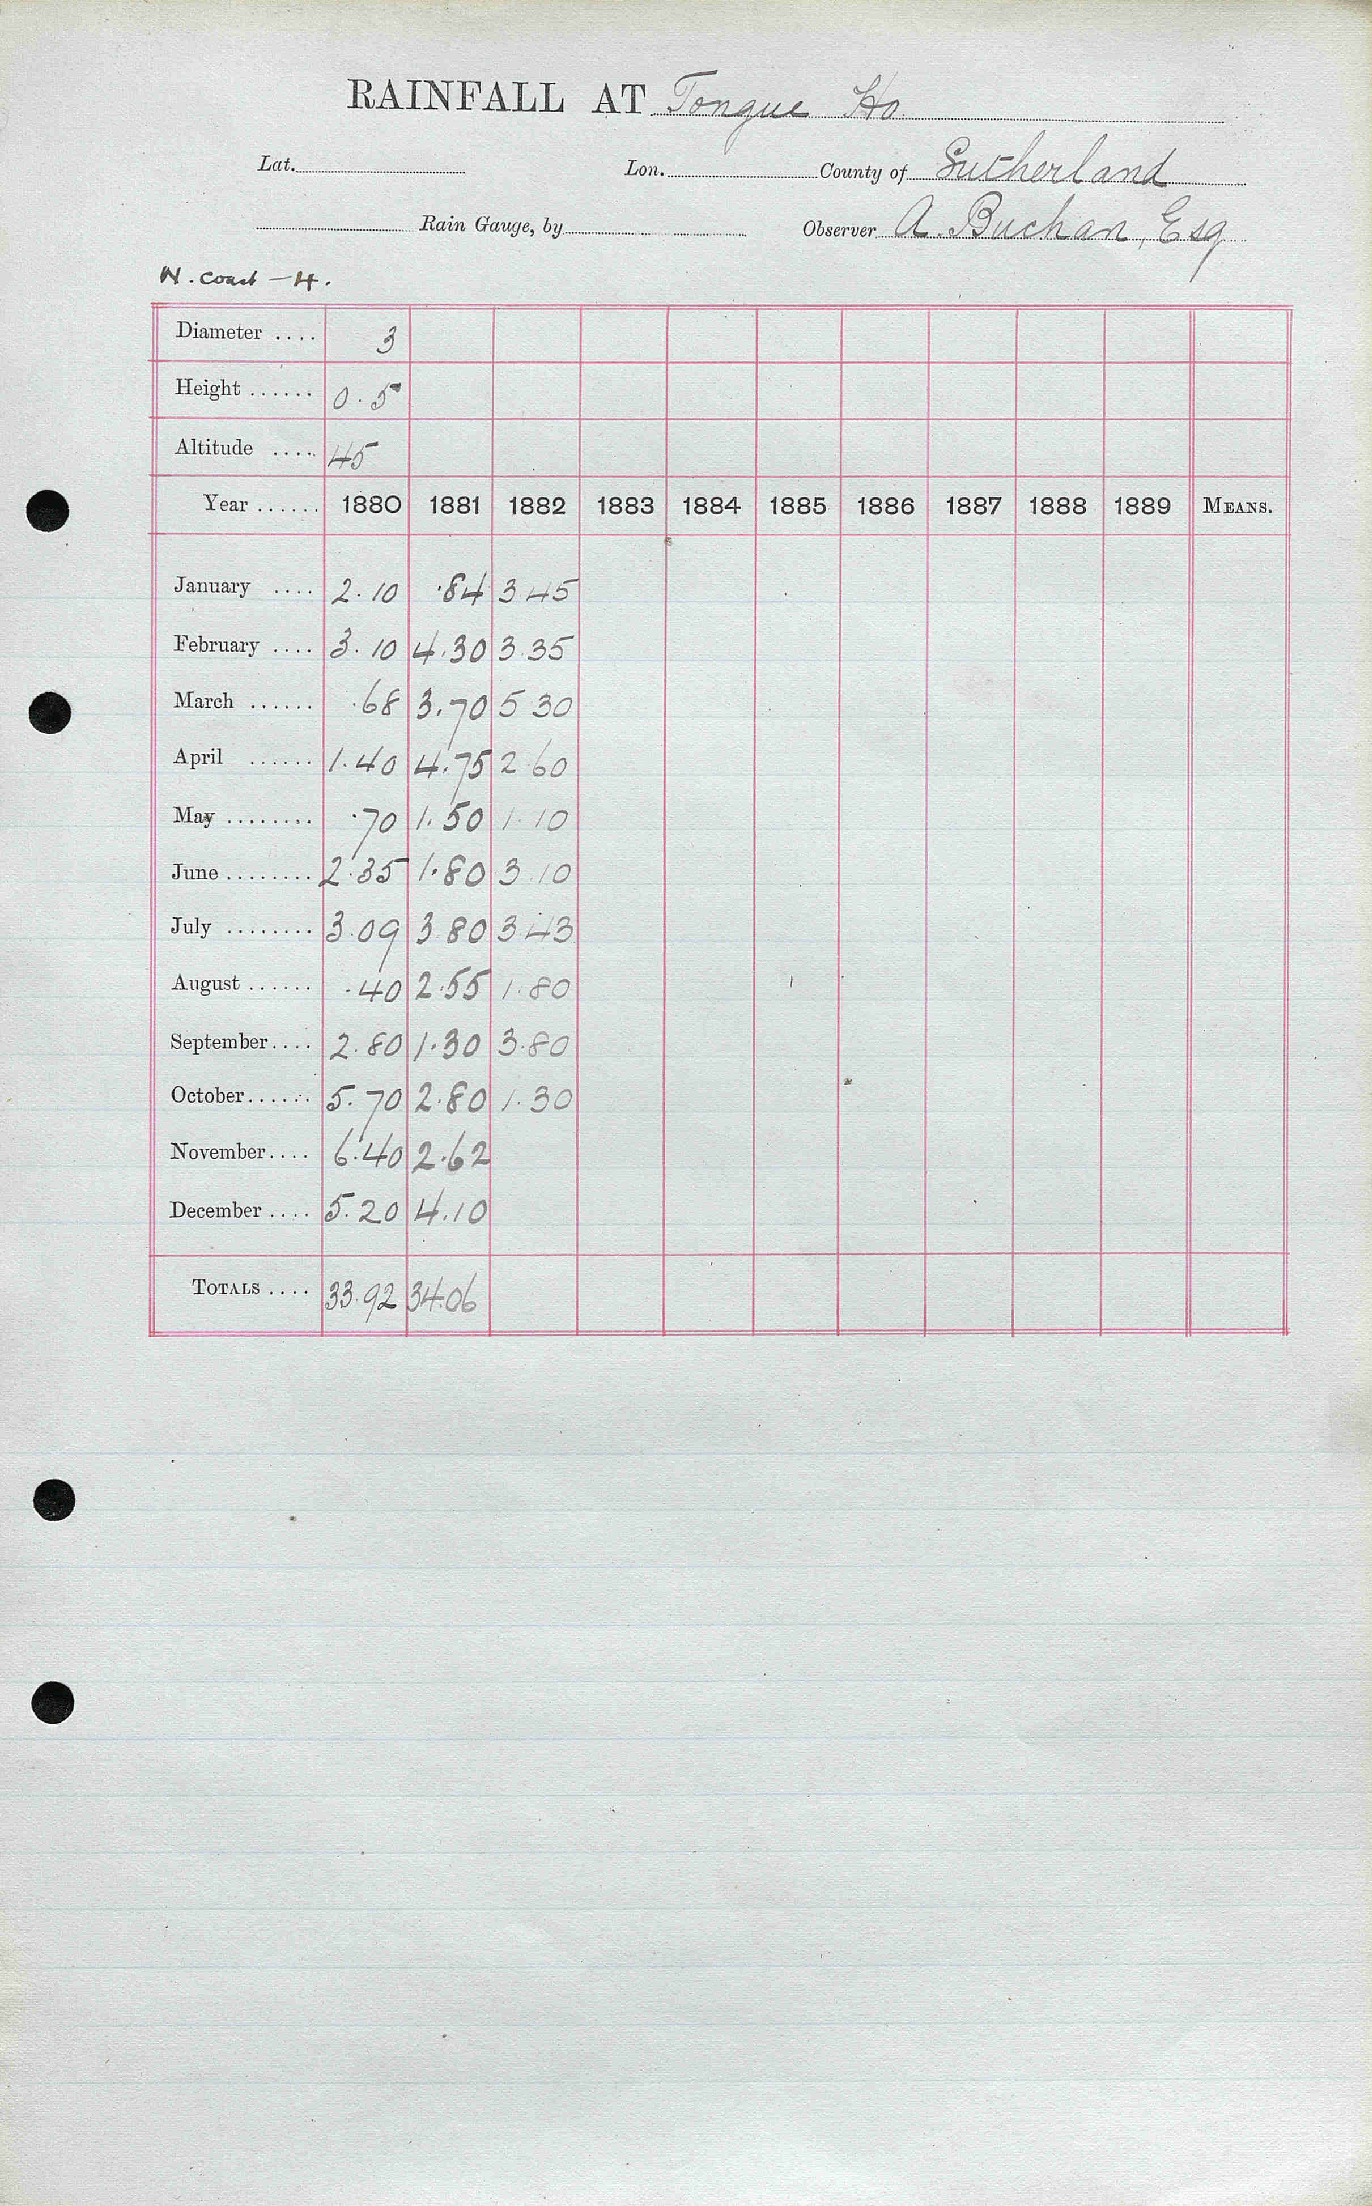 RAINFALL AT Tongue Ho.
Lat. Lon. County of Sutherland
Rain Gauge, by Observer A. Buchan, Esq
N. Coast - 4.
Diameter .... 3
Height ...... 0.5
Altitude .... 45
Year ...... 1880 1881 1882 1883 1884 1885 1886 1887 1888 1889 MEANS.
January .... 2.10 .84 3 45
February .... 3.10 4.30 3.35
March ...... .68 3.70 5 30
April ...... 1.40 4.75 2.60
May ........ .70 1.50 1.10
June ........ 2.35 1.80 3.10
July ........ 3.09 3.80 3.43
August ...... .40 2.55 1.80
September.... 2.80 1.30 3.80
October...... 5.70 2.80 1.30
November.... 6.40 2.62
December .... 5.20 4.10
TOTALS .... 33.92 34.06